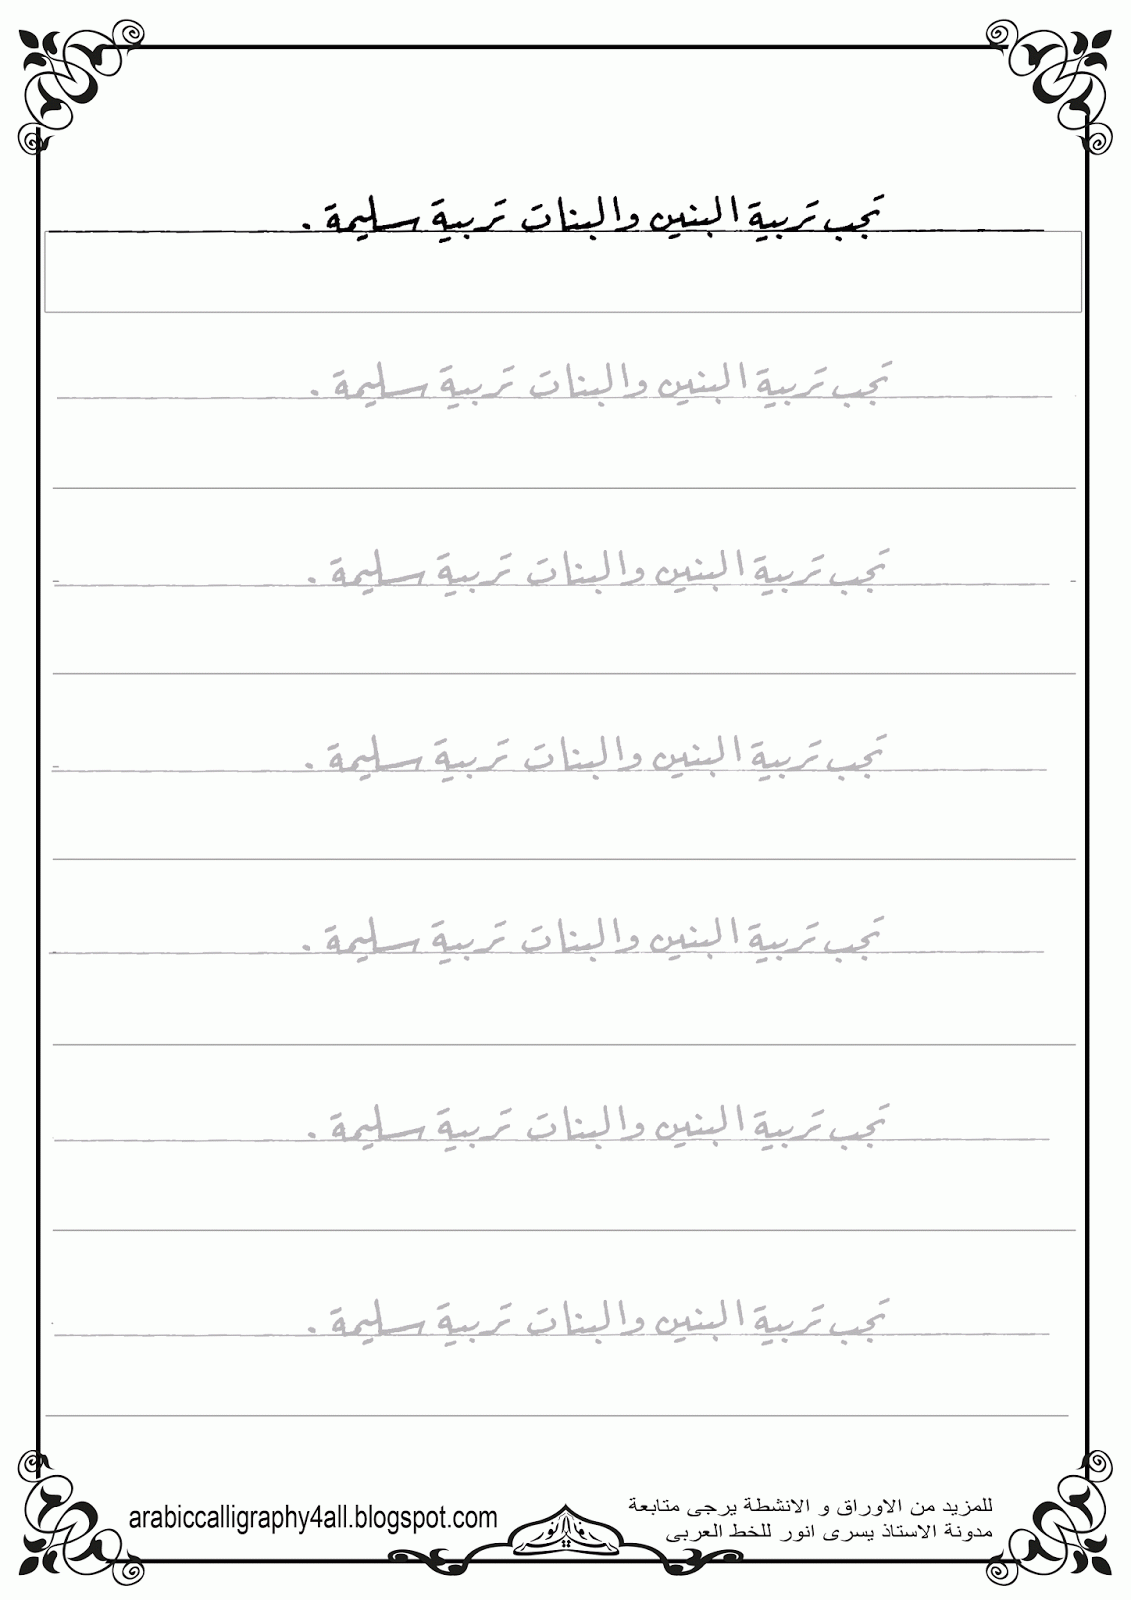 تجب تربية البنين والبنات تربية سليمة .
تجب تربية البنين والبنات تربية سليمة .
تجب تربية البنين والبنات تربية سليمة .
تجب تربية البنين والبنات تربية سليمة .
تجب تربية البنين والبنات تربية سليمة .
تجب تربية البنين والبنات تربية سليمة .
تجب تربية البنين والبنات تربية سليمة .
للمزيد من الاوراق و الانشطة يرجى متابعة
مدونة الاستاذ يسرى انور للخط العربى
arabiccalligraphy4all.blogspot.com